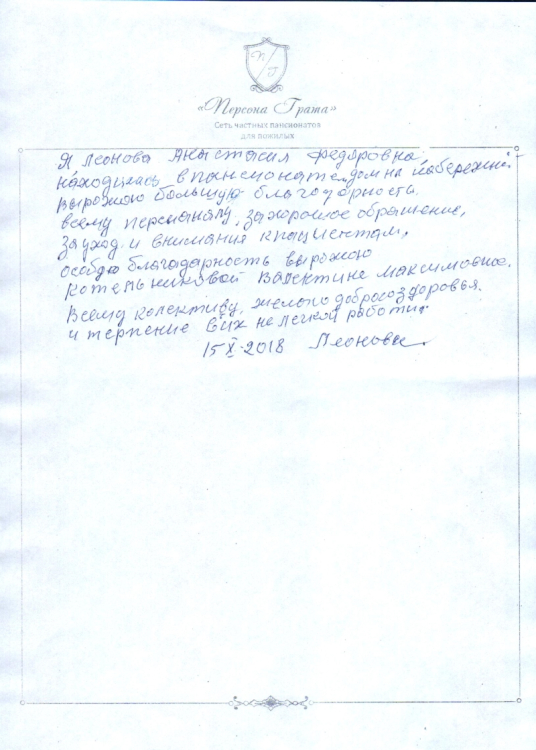 П
Г
«Персона Грата»
Сеть частных пансионатов
для пожилых
Я Леонова Анастасия Федоровна
находилась в пансионате „дом на набережной
вырожою большую благодарность.
всему персоналу, за хорошое обрашение,
За уход. и внимания к пациентам,
особую благодарность вырожою
Котельниковой Валентине Максимовне.
Всему колективу, желого доброго здоровья.
и терпение в их не легкой работи.
15 X 2018 Леонова.